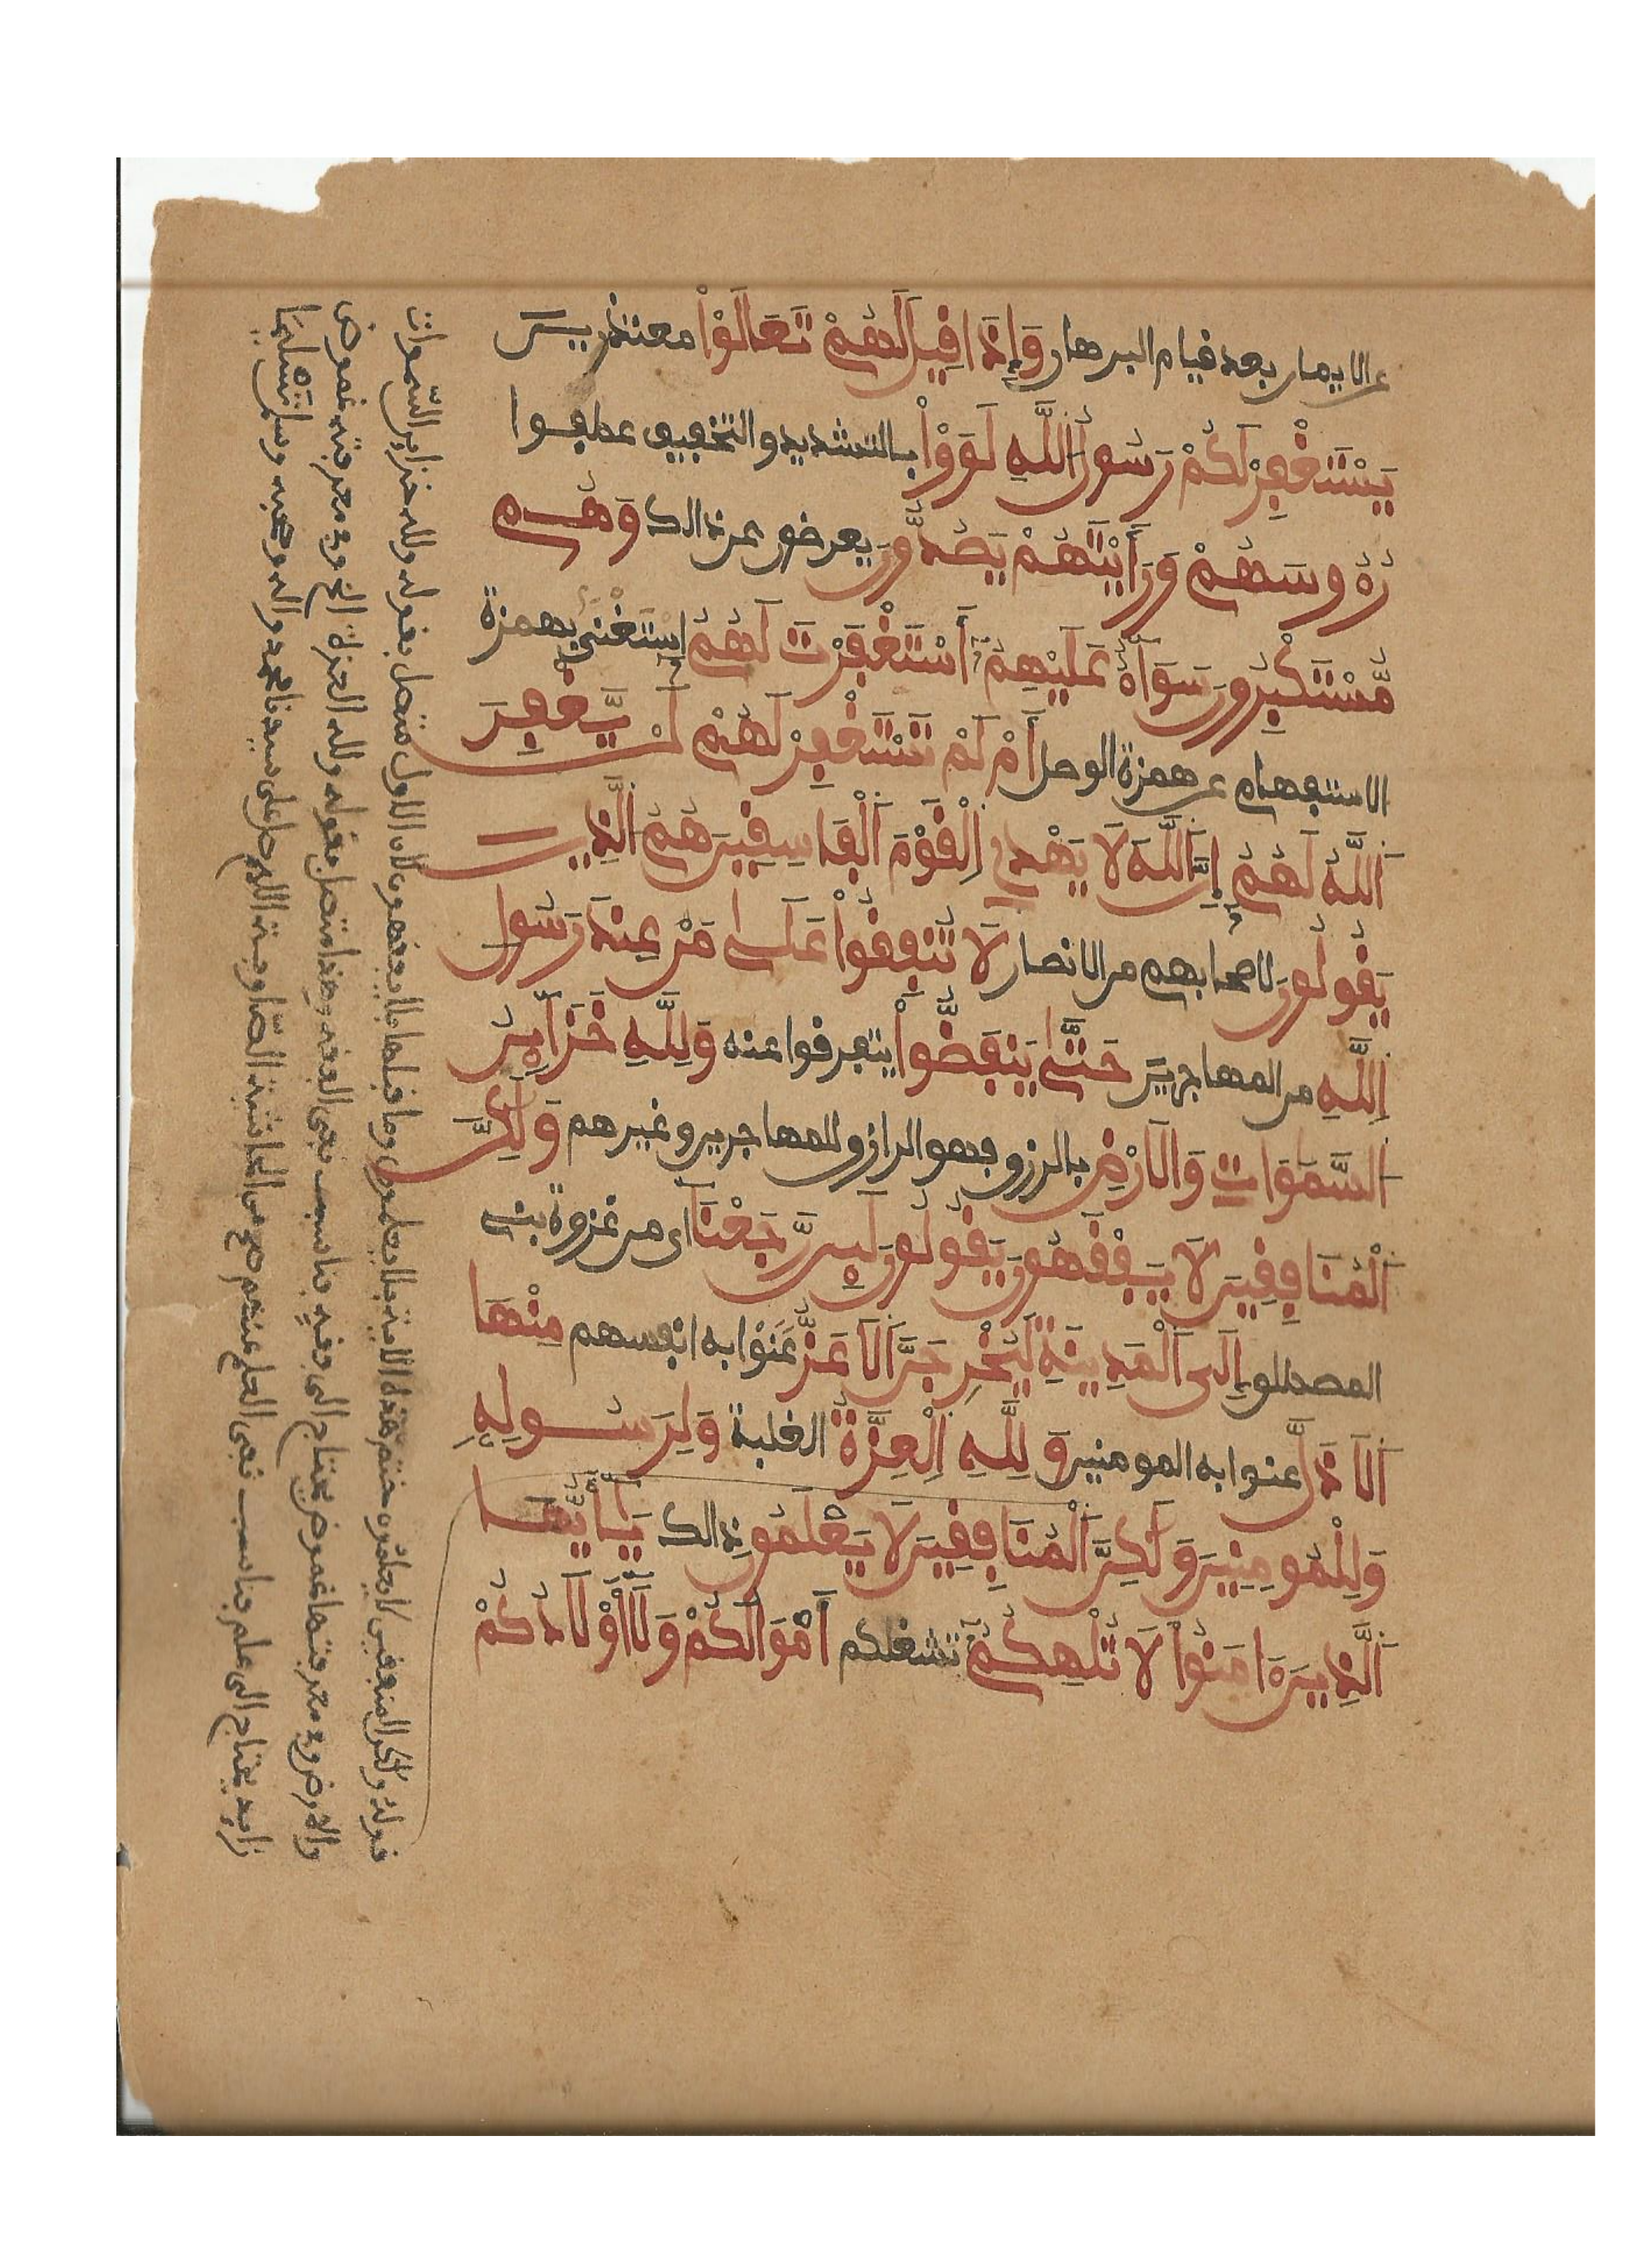 عن الايمان بعد قيام البرهان وَإِذَا قِيلَ لَهُمْ تَعَالَوْاْ معتذرين
يَسْتَغْفِرْ لَكُمْ رَسُولُ اَللَّهِ لَوَوْاْ بالتشديد والتخفيف عطفوا
رُءُوسَهُمْ وَرَأَيْتَهُمْ يَصُدُّونَ يعرضون عن ذالك وَهُم
مُّسْتَكْبِرُونَ سَوَآءٌ عَلَيْهِمُ أَسْتَغْفَرْتَ لَهُمُ استغنى بهمزة
الاستفهام عن همزة الوصل أَمْ لَمْ تَسْتَغْفِرْ لَهُمْ لَنْ يَّغْفِرَ
اَللَّهُ لَهُمُ إِنَّ اَللَّهَ لَا يَهْدِي اِلْقَوْمَ اَلْفَاسِقِينَ هُمُ الَّذِينَ
يَقُولُونَ لاصحابهم من الانصار لَا تُنْفِقُواْ عَلَىٰ مَنْ عِندَ رَسُولِ
اِللَّهِ من المهاجرين حَتَّىٰ يَنفَضُّواْ يتفرقوا عنه وَلِلَّهِ خَزَآئِنُ
السَّمَوَاتِ وَالَارْضِ بالرزق فهو الرازق للمهاجرين وغيرهم وَلَٰكِنَّ
اَلْمُنَافِقِينَ لَا يَفْقَهُونَ يَقُولُونَ لَئِن رَّجَعْنَا اى من غزوة بنى
المصطلق إِلَى اَلْمَدِينَةِ لَيُخْرِجَنَّ اَلَاعَزُّ عَنَوْا به انفسهم مِنْهَا
اَلَاذَلَّ عنوا به المومنين وَلِلَّهِ اِلْعِزَّةُ الغلبة وَلِرَسُولِهِ
وَلِلْمُومِنِينَ وَلَٰكِنَّ اَلْمُنَافِقِينَ لَا يَعْلَمُونَ ذالك يَٰأَيُّهَا
اَلَّذِينَ ءَامَنُواْ لَا تُلْهِكُمُ تشغلكم أَمْوَالُكُمْ وَلَا أَوْلَادُكُمْ
قوله ولكن المنفقين لا يعلمون ختم هذه الاية بلا يعلمون وما قبلها بلا يفقهون لان الاول متصل بقوله ولله خزاين السموات
والارض وفى معرفتها غموض يحتاج الى وفقه فناسب نفى الفقه وهذا متصل بقوله ولله العزة الخ وفى معرفته غموض
زايد يحتاج الى علم فناسب نفى العلم عنهم صح من الحاشية الصاوية اللهم صل على سيدنا محمد واله وصحبه وسلم تسليما